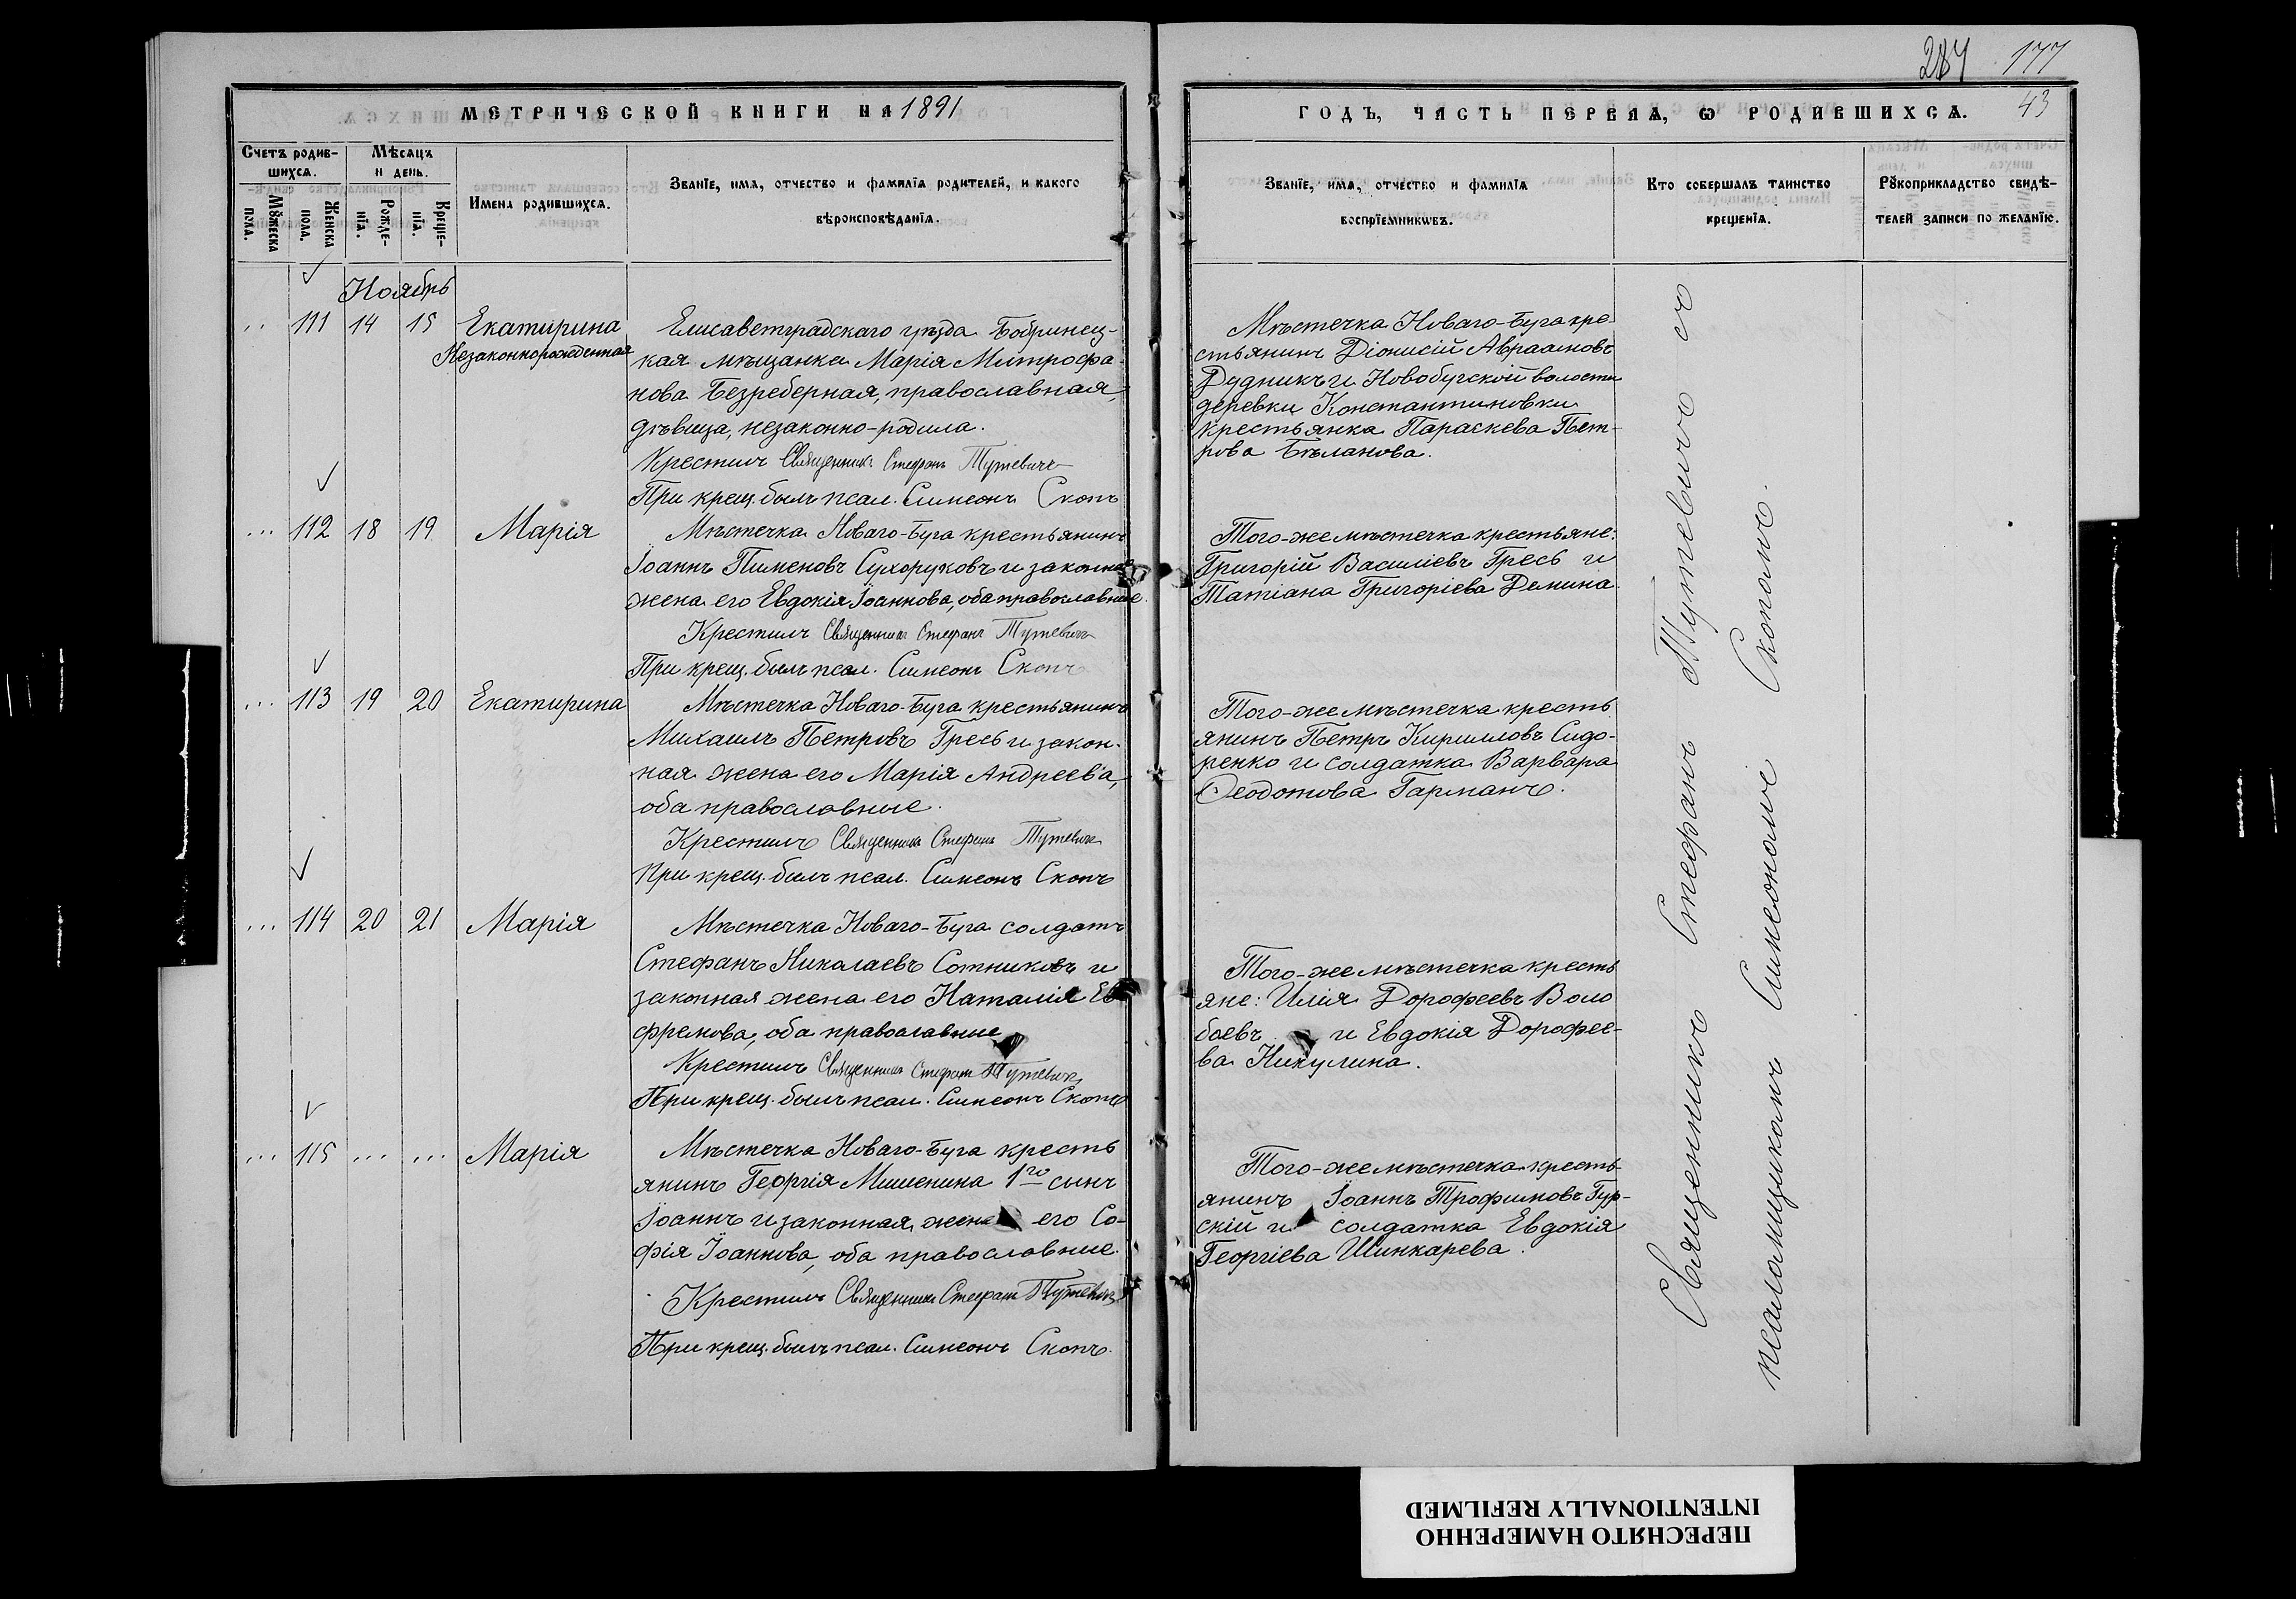 284 177
МЕТРИЧЕСКОЙ КНИГИ НА 1891
ГОДЪ, ЧАСТЬ ПЕРВАЯ, Ѡ РОДИВШИХСѦ. 43
Счетъ родив-
шихсѧ.
Мꙋжеска
пола.
Женска
пола.
Мѣсѧцъ
и день.
Рожде-
нїѧ.
Креще-
нїѧ.
Имена родившихсѧ.
Званїе, имѧ, отчество и фамилїѧ родителей, и какого
вѣроисповѣданїѧ.
Званїе, имѧ, отчество и фамилїѧ
воспрїемникѡвъ.
Кто совершалъ таинство
крещенїѧ.
Рꙋкоприкладство свидѣ-
телей записи по желанїю.
Ноябрь
.. 111 14 15 Екатирина
Незаконнорожденная
Елисаветградскаго уѣзда Бобринец-
кая мѣщанка Марія Митрофа-
нова Безреберная, православная,
дѣвица, незаконно-родила.
Крестилъ Священникъ Стефанъ Тутевичъ
При крещ. былъ псал. Симеонъ Скопъ
Мѣстечка Новаго-Буга кре-
стьянинъ Діонисій Авраамовъ
Дудникъ и Новобугской волости
деревни Константиновки
крестьянка Параскева Пет-
рова Бѣланова.
... 112 18 19 Марія
Мѣстечка Новаго-Буга крестьянинъ
Іоаннъ Пименовъ Сухоруковъ и законная
жена его Евдокія Іоаннова, оба православные.
Крестилъ Священникъ Стефанъ Тутевичъ
При крещ. былъ псал. Симеонъ Скопъ
Того-же мѣстечка крестьяне:
Григорій Василіевъ Гресь и
Татіана Григоріева Демина.
... 113 19 20 Екатирина
Мѣстечка Новаго-Буга крестьянинъ
Михаилъ Петровъ Гресь и закон-
ная жена его Марія Андреева,
оба православные.
Крестилъ Священникъ Стефанъ Тутевичъ
При крещ. былъ псал. Симеонъ Скопъ
Того-же мѣстечка кресть
янинъ Петръ Кирилловъ Сидо-
ренко и солдатка Варвара
Ѳеодотова Гарманъ.
... 114 20 21 Марія
Мѣстечка Новаго-Буга солдатъ
Стефанъ Николаевъ Сотниковъ и
законная жена его Наталія Ев
фремова, оба православные
Крестилъ Священникъ Стефанъ Тутевичъ
При крещ. былъ псал. Симеонъ Скопъ
Того-же мѣстечка кресть
яне: Илія Дорофеевъ Воло
боевъ и Евдокія Дорофее-
ва Никулина.
... 115 ... ... Марія
Мѣстечка Новаго-Буга кресть
янинъ Георгія Мишенина 1го сынъ
Іоаннъ и законная жена его Со-
фія Іоаннова, оба православные.
Крестилъ Священникъ Стефанъ Тутевичъ
При крещ. былъ псал. Симеонъ Скопъ.
Того-же мѣстечка кресть-
янинъ Іоаннъ Трофимовъ Гур-
скій и солдатка Евдокія
Георгіева Шинкарева.
Священникъ Стефанъ Тутевичъ съ
псаломщикомъ Симеономъ Скопомъ.
ПЕРЕСНЯТО НАМЕРЕННО
INTENTIONALLY REFILMED